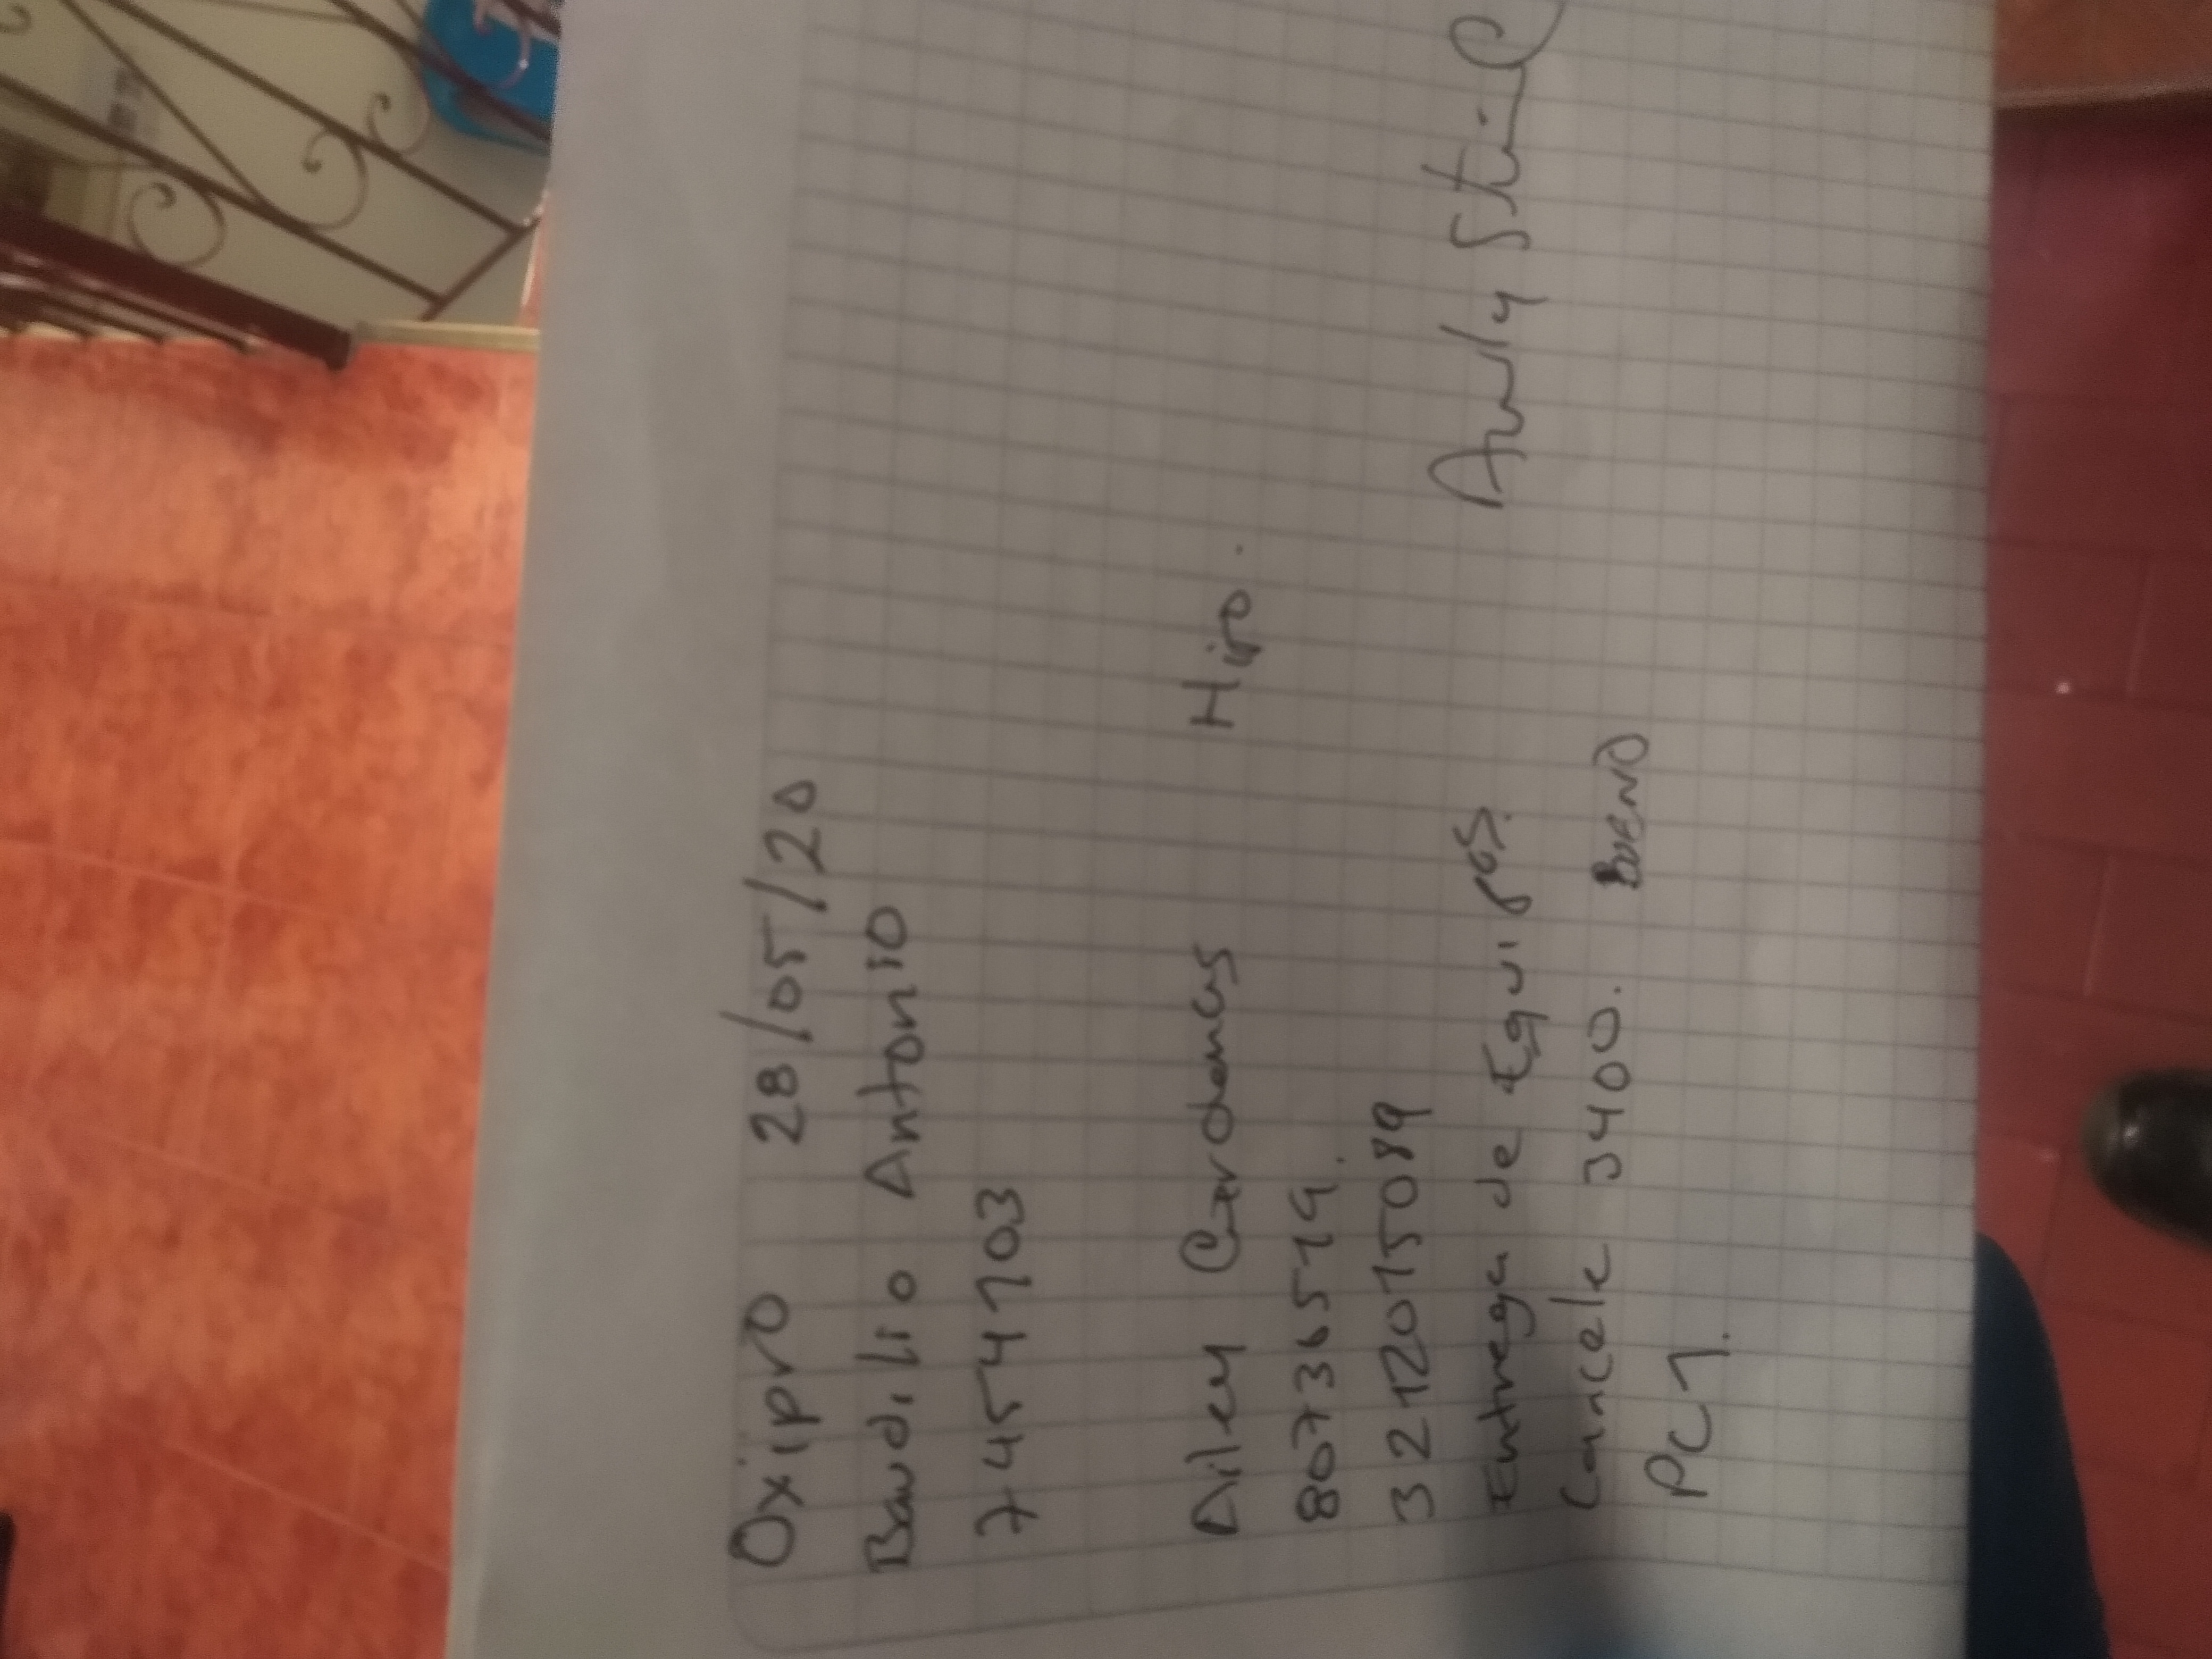 Oxipro 28/05/20
Baudilio Antonio
7454703
Diley Cardenas Hijo.
80736519.
3212015089
Entrega de Equipos.
Cancele 3400. BUENO
PC 1.